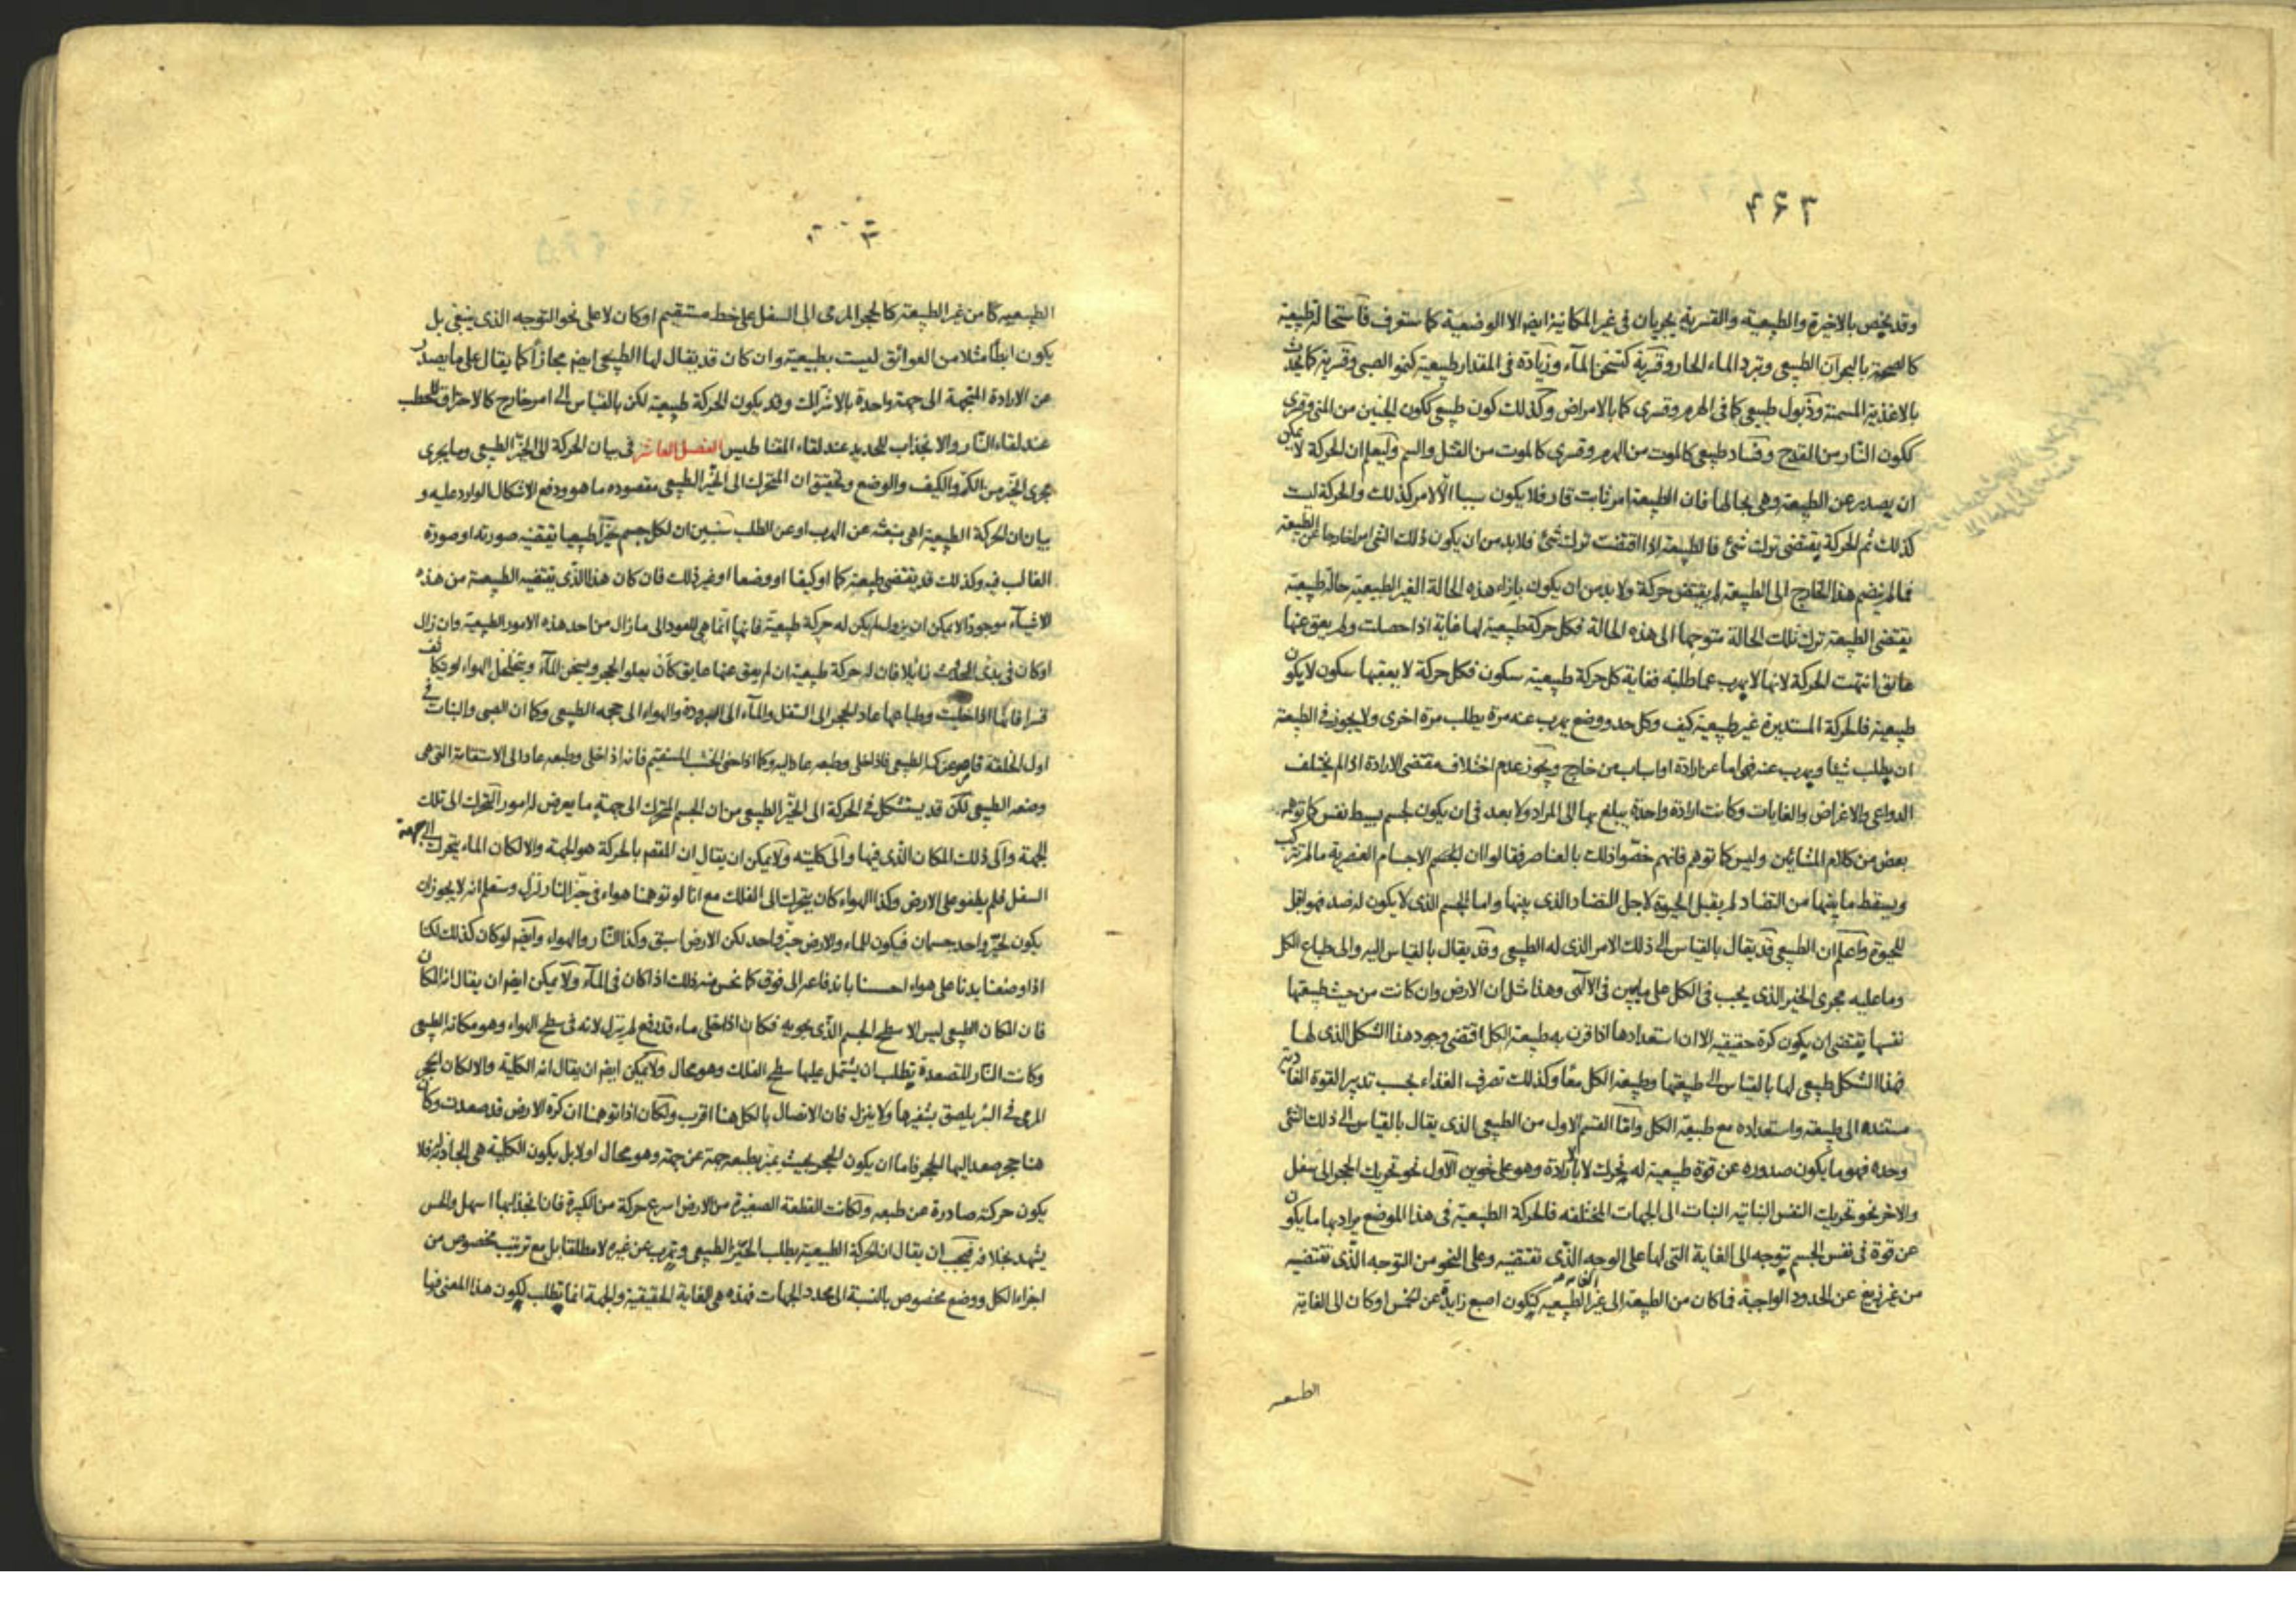 ۴۶۳
وقد يخص بالاخيرة والطبيعية والقسرية يجريان فى غير المكانية ايضا الا الوضعية كما ستعرف فاستحالة طبيعية
كالصحة بالبحران الطبيعى وتبرد الماء الحار وقسرية كتسخن المآء وزيادة فى المقدار طبيعية كنمو الصبى وقسرية كما يحدث
بالاغذية المسمنة وذبول طبيعى كما فى الهرم وقسرى كما بالامراض وكذلك كون طبيعى ككون الجنين من المنى وقسرى
ككون النار من القدح وفساد طبيعى كالموت من الهرم وقسرى كالموت من القتل والسم وليعلم ان الحركة لا يمكن
ان يصدر عن الطبيعة وهى بحالها فان الطبيعة امر ثابت قار فلا يكون سببا الا لامر كذلك والحركة ليست
كذلك ثم الحركة يقتضى ترك شئ فالطبيعة اذا اقتضت ترك شئ فلا بد من ان يكون ذلك الشئ امرا خارجا عن الطبيعة
فما لم ينضم هذا الخارج الى الطبيعة لم يقتض حركة ولا بد من ان يكون بازاء هذه الحالة الغير الطبيعية حالة طبيعية
يقتضى الطبيعة ترك تلك الحالة متوجها الى هذه الحالة فكل حركة طبيعية لها غاية اذا حصلت ولم يعق عنها
عائق انتهت الحركة لانها لا يهرب عما طلبته فغاية كل حركة طبيعية سكون فكل حركة لا يعقبها سكون لا يكون
طبيعية فالحركة المستديرة غير طبيعية كيف وكل حد ووضع يهرب عنه مرة يطلب مرة اخرى ولا يجوز فى الطبيعة
ان يطلب شيئا ويهرب عنه فهى اما عن ارادة او اسباب من خارج ويجوز عدم اختلاف مقتضى الارادة اذا لم يختلف
الدواعى والاغراض والغايات وكانت ارادة واحدة يبلغ بها الى المراد ولا بعد فى ان يكون لجسم بسيط نفس كما توهم
بعض من كلام المشائين وليس كما توهم فانهم خصوا ذلك بالعناصر فقالوا ان الجسم الاجسام العنصرية ما لم تتركب
ويسقط ما بينها من التضاد لم يقبل الحيوة لاجل التضاد الذى بينها واما الجسم الذى لا يكون له ضد فهو اقبل
للحيوة واعلم ان الطبيعى قد يقال بالقياس الى ذلك الامر الذى له الطبيعى وقد يقال بالقياس اليه والى طباع الكل
وما عليه مجرى الخير الذى يجب فى الكل على ما يبين فى الالهى وهذا مثل ان الارض وان كانت من حيث طبيعتها
نفسها يقتضى ان يكون كرة حقيقية الا ان استعدادها اذا قرن به طبيعة الكل اقتضى وجود هذا الشكل الذى لها
فهذا الشكل طبيعى لها بالقياس الى طبيعتها وطبيعة الكل معا وكذلك تصرف الغذاء بحسب تدبير القوة الغاذية
مستنده الى طبيعته واستعداده مع طبيعة الكل واما القسم الاول من الطبيعى الذى يقال بالقياس الى ذلك الشئ
وحده فهو ما يكون صدوره عن قوة طبيعية له تحرك لا بارادة وهو على نحوين الاول نحو تحريك الحجر الى سفل
والاخر نحو تحريك النفس النباتية النبات الى الجهات المختلفه فالحركة الطبيعية فى هذا الموضع يراد بها ما يكون
عن قوة فى نفس الجسم توجه الى الغاية التى لها على الوجه الذى تقتضيه وعلى النحو من التوجه الذى تقتضيه
من غير زيغ عن الحدود الواجبة فما كان من الطبيعة الى غير الغاية الطبيعيه كتكون اصبع زايدة عن الخمس او كان الى الغاية
الطبيعيه
الطبيعيه كما من غير الطبيعة كالحجر المرمى الى السفل على خط مستقيم او كان لا على نحو التوجه الذى ينبغى بل
يكون ابطأ مثلا من العوائق ليست بطبيعية وان كان قد يقال لها الطبيعى ايضا مجازا كما يقال على ما يصدر
عن الارادة المتجهة الى جهة واحدة بالاشتراك وقد يكون الحركة طبيعية لكن بالقياس الى امر خارج كالاحتراق للحطب
عند لقاء النار والانجذاب للحديد عند لقاء المقناطيس الفصل العاشر فى بيان الحركة الى الحيز الطبيعى وما يجرى
مجرى الحيز من الكم والكيف والوضع وتحقيق ان المتحرك الى الحيز الطبيعى مقصوده ما هو ودفع الاشكال الوارد عليه و
بيان ان الحركة الطبيعية اهى منبعثه عن الهرب او عن الطلب سنبين ان لكل جسم حيزا طبيعيا يقتضيه صورته او صورة
الغالب فيه وكذلك قد يقتضى طبيعة كما او كيفا او وضعا او غير ذلك فان كان هذا الذى يقتضيه الطبيعة من هذه
الاشياء موجودا لا يمكن ان يزول لم يكن له حركة طبيعية فانها انما هى للعود الى ما زال من احد هذه الامور الطبيعية وان زال
او كان فى بدئ الحدوث زائلا فان له حركة طبيعية ان لم يعق عنها عايق كأن يعلو الحجر ويسخن المآء ويتخلخل الهواء لو تكاثف
قسرا فانها اذا خليت وطباعها عاد الحجر الى السفل والمآء الى البرودة والهواء الى حجمه الطبيعى وكما ان الصبى والنبات فى
اول الخلقة قاصر عن كمه الطبيعى فاذا خلى وطبعه عاد اليه وكما اذا حنى الخشب المستقيم فانه اذا خلى وطبعه عاد الى الاستقامة التى هى
وضعه الطبيعى لكن قد يستشكل فى الحركة الى الحيز الطبيعى من ان الجسم المتحرك الى جهة ما يعرض له امور التحرك الى تلك
الجهة والى ذلك المكان الذى فيها والى كليته ولا يمكن ان يقال ان المقصد بالحركة هو الجهة والا لكان الماء يتحرك الى جهة
السفل فلم يطفو على الارض وكذا الهواء كان يتحرك الى الفلك مع انا لو توهمنا هواء فى حيز النار نزل وستعلم انه لا يجوز ان
يكون لحيز واحد جسمان فيكون للماء والارض حيز واحد لكن الارض اسبق وكذا النار والهواء وايضا لو كان كذلك لكنا
اذا وضعنا يدنا على هواء احسسنا باندفاعه الى فوق كما نحس منه ذلك اذا كان فى المآء ولا يمكن ايضا ان يقال انه المكان
فان المكان الطبيعى ليس الا سطح الجسم الذى يحويه فكان اذا خلى ماء قد رفع لم ينزل لانه فى سطح الهواء وهو مكانه الطبيعى
وكانت النار المتصعدة يطلب ان يشتمل عليها سطح الفلك وهو محال ولا يمكن ايضا ان يقال انه الكلية والا لكان الحجر
المرمى فى البئر يلصق بشفيرها ولا ينزل فان الاتصال بالكل هنا اقرب ولكان اذا توهمنا ان كرة الارض قد صعدت وكان
هنا حجر صعد اليها الحجر فاما ان يكون الحجر بحيث يميز بطبعه جهة عن جهة وهو محال او لا بل يكون الكلية هى الجاذبة له فلا
يكون حركته صادرة عن طبعه ولكانت القطعة الصغيرة من الارض اسرع حركة من الكبيرة فان انجذابها اسهل والحس
يشهد بخلافه فيجب ان يقال ان الحركة الطبيعية يطلب الحيز الطبيعى وتهرب عن غيره لا مطلقا بل مع ترتيب مخصوص من
اجزاء الكل ووضع مخصوص بالنسبة الى محدد الجهات فهذه هى الغاية الحقيقية والجهة انما يطلب لكون هذا المعنى فيها